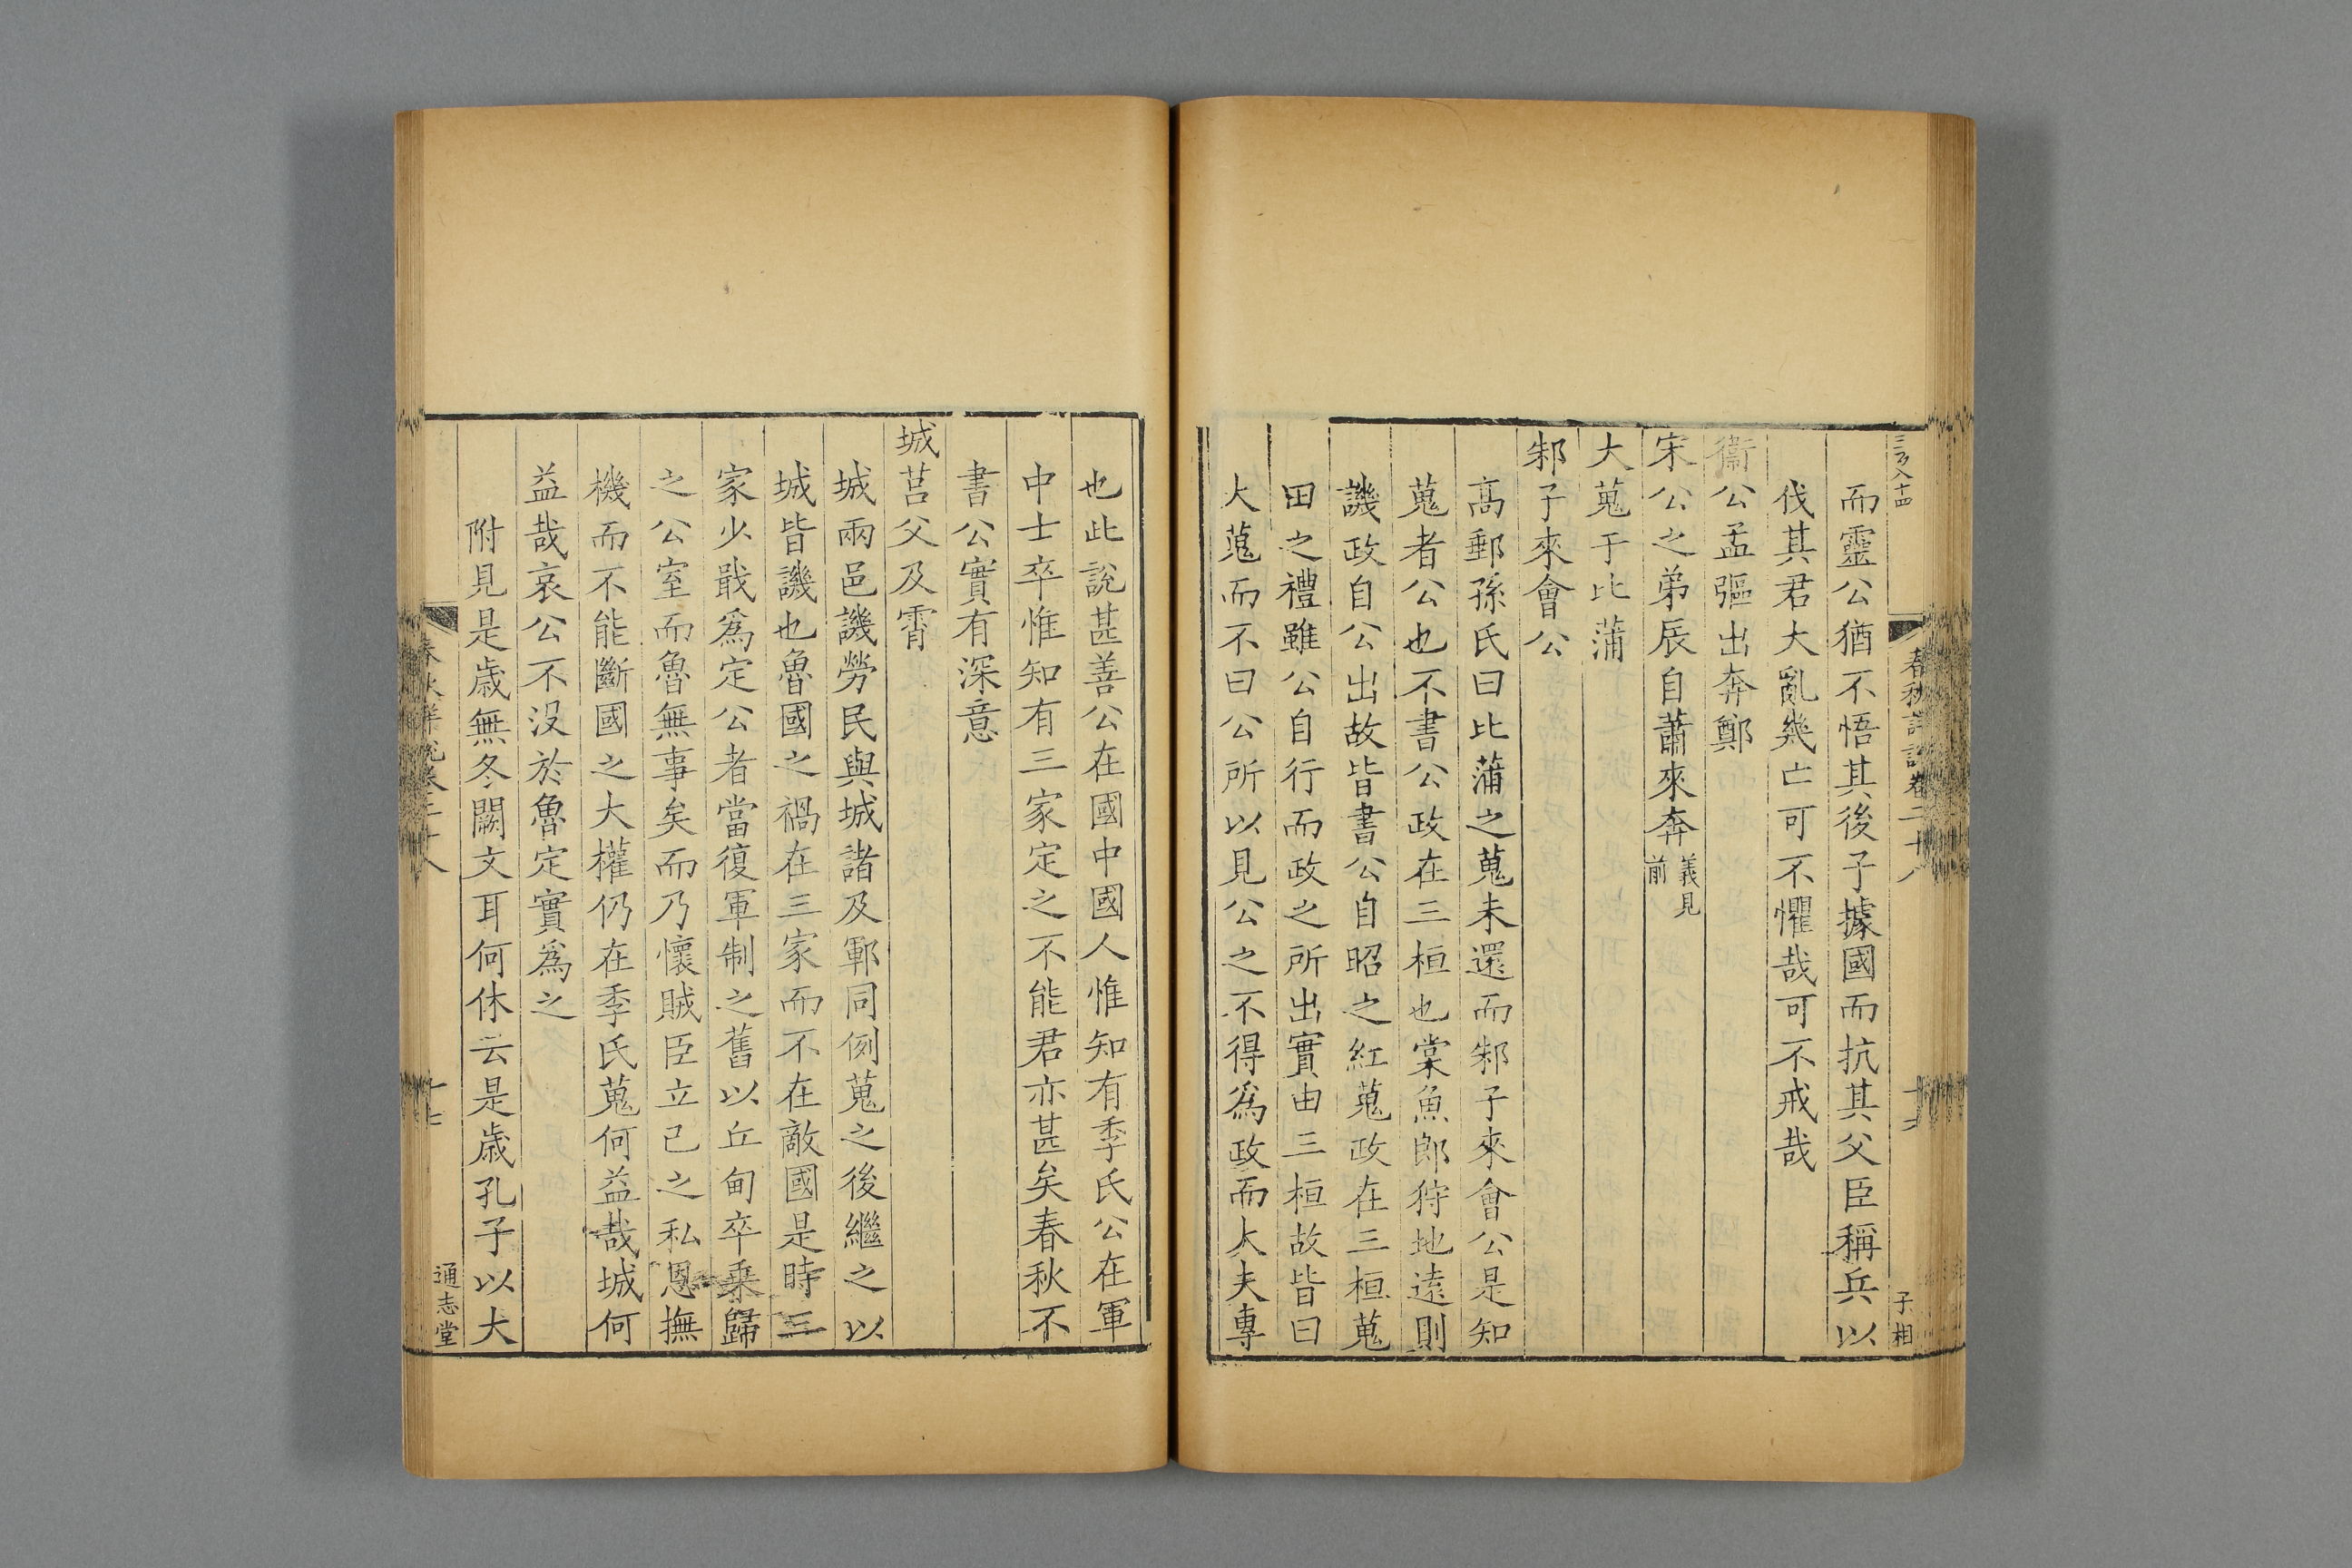 而靈公猶不悟其後子據國而抗其父臣稱兵以
伐其君大亂幾亡可不懼哉可不戒哉
衞公孟彄出奔鄭
宋公之弟辰自蕭來奔義見前
大蒐于比蒲
邾子來會公
高郵孫氏曰比蒲之蒐未還而邾子來會公是知
蒐者公也不書公政在三桓也棠魚郎狩地遠則
譏政自公出故皆書公自昭之紅蒐政在三桓蒐
田之禮雖公自行而政之所出實由三桓故皆曰
大蒐而不曰公所以見公之不得爲政而大夫專
春秋詳說卷二十八
子相
也此說甚善公在國中國人惟知有季氏公在軍
中士卒惟知有三家定之不能君亦甚矣春秋不
書公實有深意
城莒父及霄
城兩邑譏勞民與城諸及鄆同例蒐之後繼之以
城皆譏也魯國之禍在三家而不在敵國是時三
家少戢爲定公者當復軍制之舊以丘甸卒乗歸
之公室而魯無事矣而乃懷賊臣立己之私恩撫
機而不能斷國之大權仍在季氏蒐何益哉城何
益哉哀公不沒於魯定實爲之
附見是歲無冬闕文耳何休云是歲孔子以大
春秋詳說卷二十八
十七
通志堂